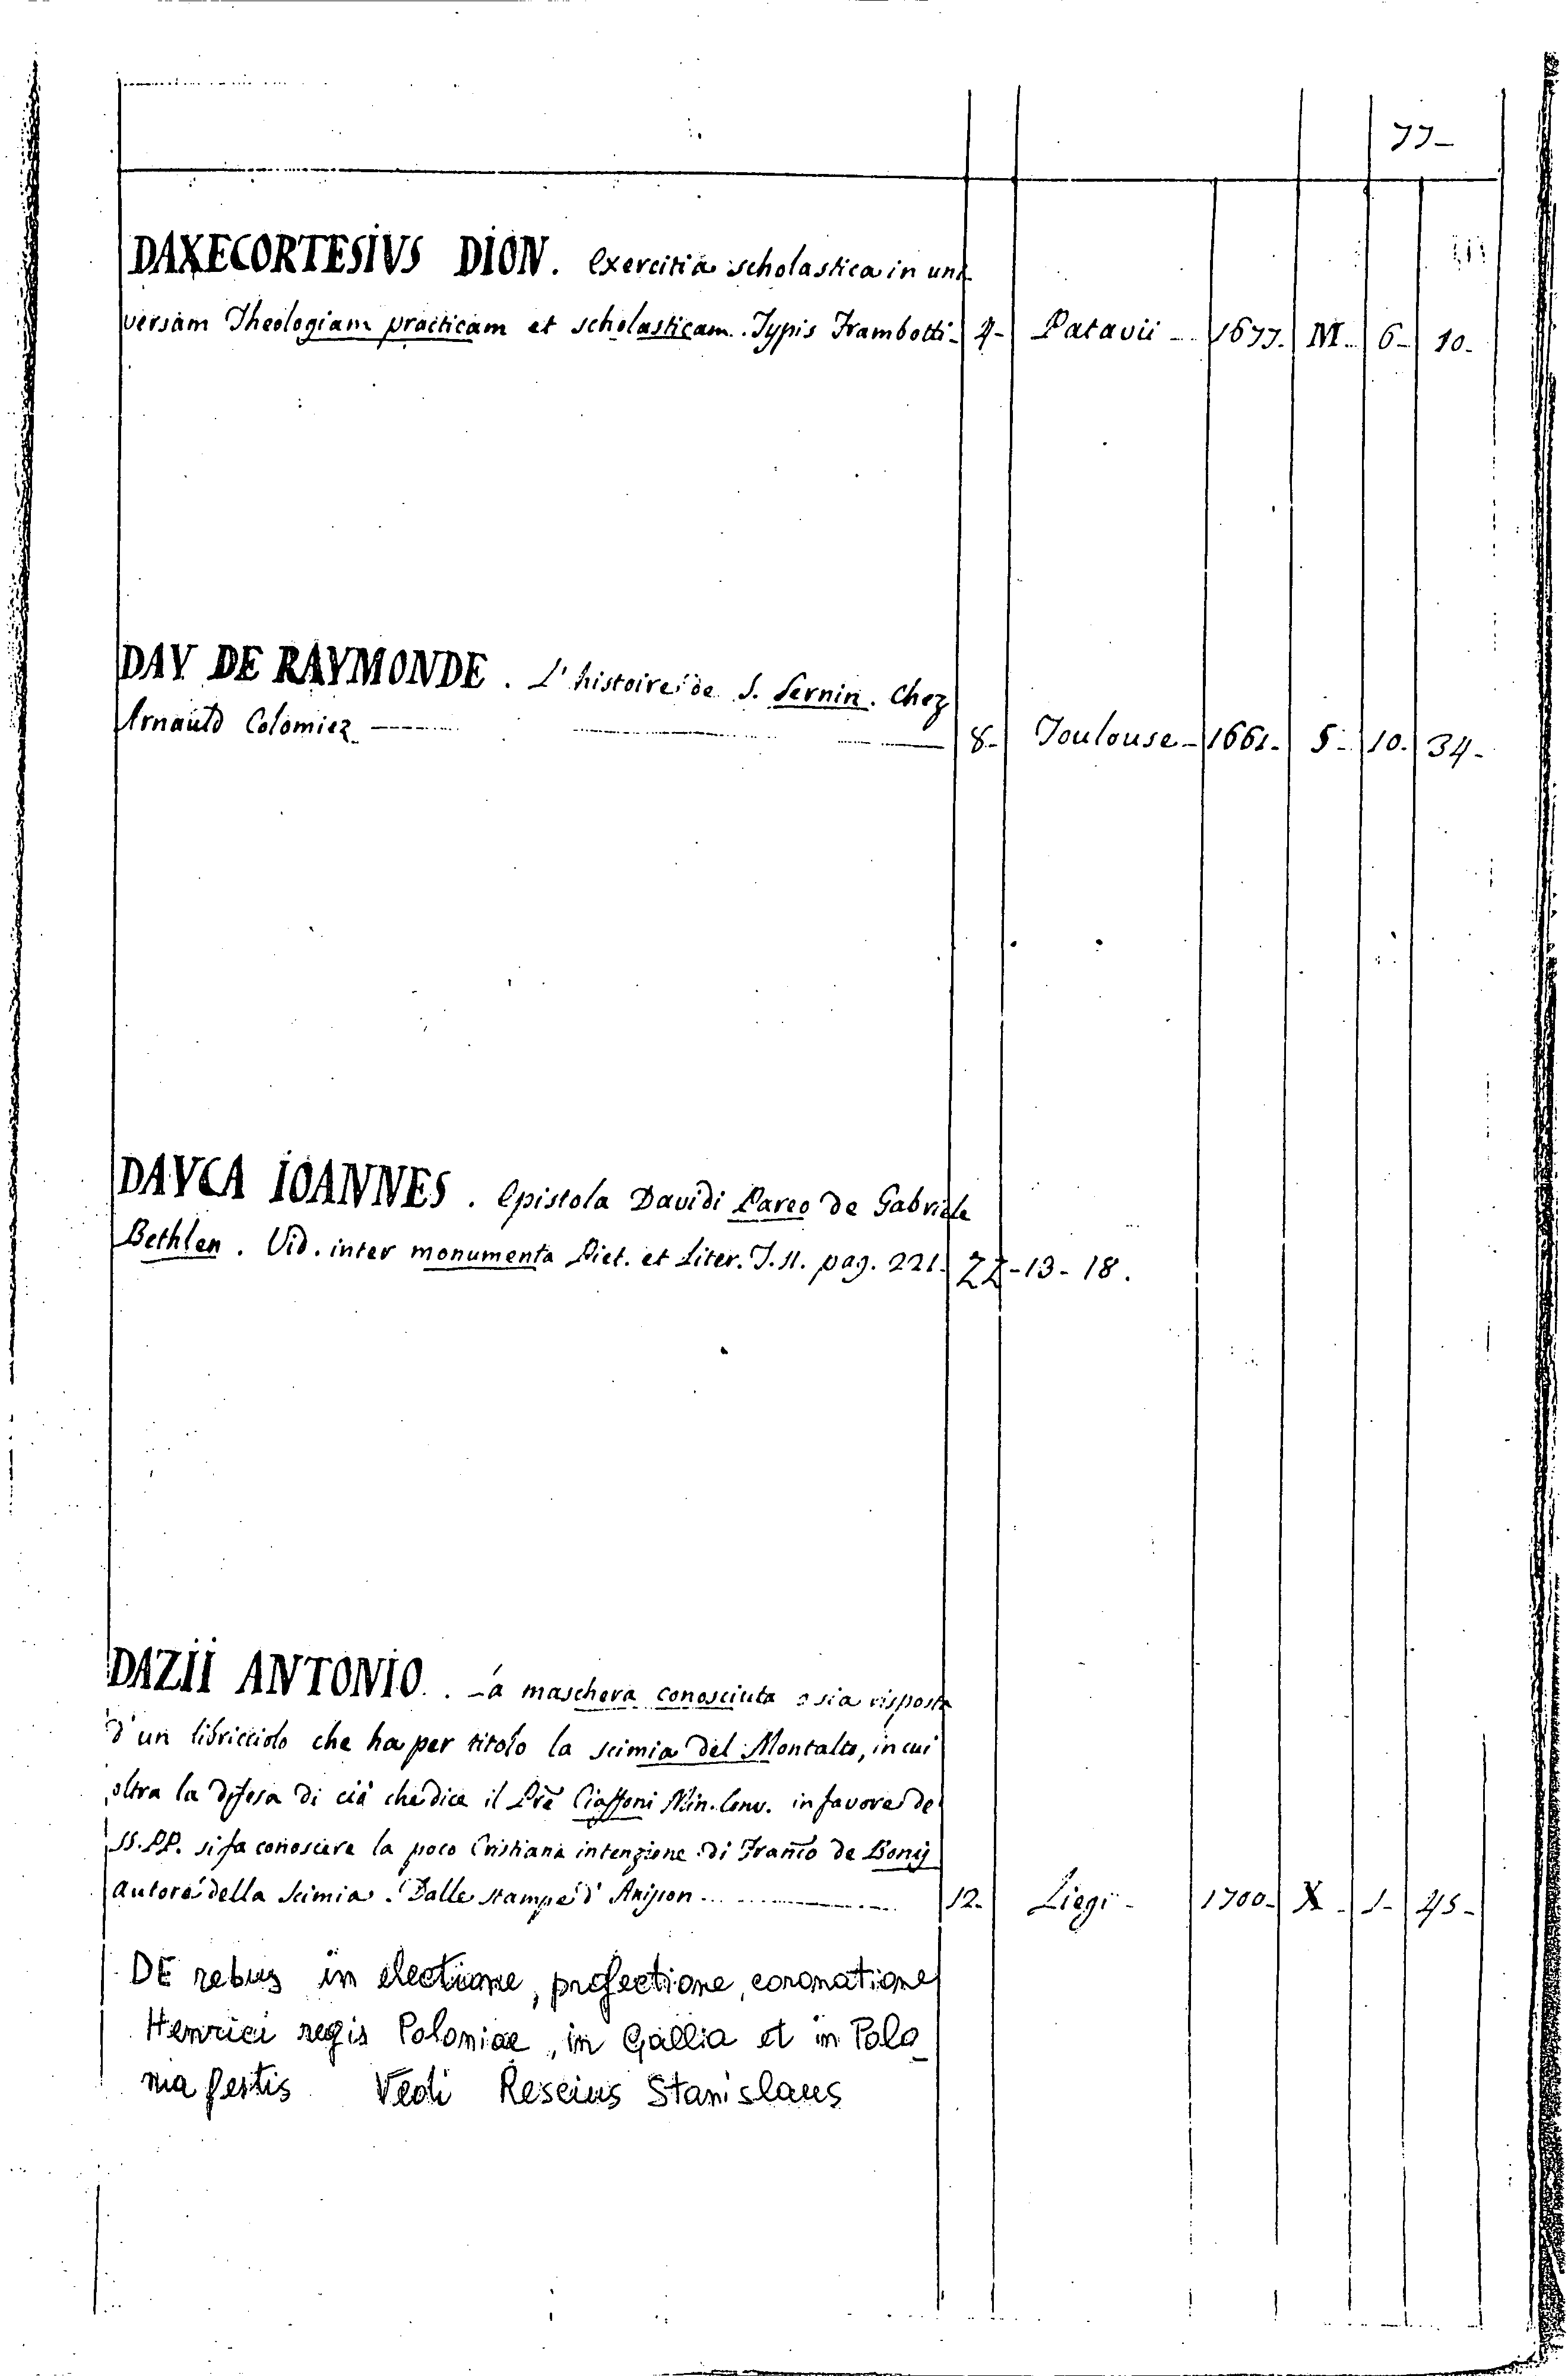 77-
DAXECORTESIVS DION. Exercitia scholastica in uni-
versam Theologiam practicam et scholasticam. Typis Frambotti- 4- Patavii - 1677. M. 6- 10-
DAY DE RAYMONDE. L'histoire de S. Sernin. Chez
Arnauld Colomiez 8- Toulouse - 1661. S- 10. 34-
DAYCA IOANNES. Epistola Davidi Pareo de Gabriele
Bethlen. Vid. inter monumenta Piet. et Liter. T. II. pag. 221. ZZ-13-18.
DAZII ANTONIO. La maschera conosciuta o sia risposta
d'un libricciolo che ha per titolo la scimia del Montalto, in cui
oltra la difesa di ciò che dice il Pre Ciaffoni Min. Conv. in favore de
SS. PP. si fa conoscere la poco Cristiana intenzione di Franco de Bonij
Autore della Scimia. Dalle stampe d'Anisson 12. Liegi - 1700- X- 1- 45-
DE rebus in electione, profectione, coronatione
Henrici regis Poloniae, in Gallia et in Polo
nia gestis Vedi Rescius Stanislaus